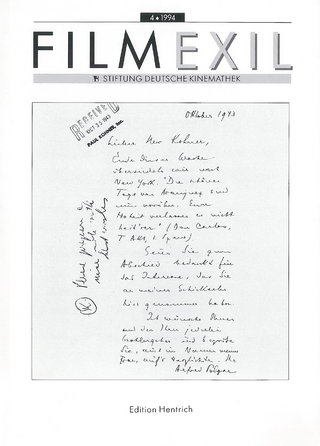 4 ♦ 1994
FILMEXIL
STIFTUNG DEUTSCHE KINEMATHEK
Oktober 1943
RECEIVED
OCT 25 1943
PAUL KOHNER, Inc.
Lieber Herr Kohner,
Ende dieser Woche
übersiedeln wir nach
New York. "Die schönen
Tage von Aranjuez sind
nun vorüber. Eure
Hoheit verlassen es nicht
heit'rer" (Don Carlos,
1. Akt, 1.
Seien Sie zum
Abschied bedankt für
das Interesse, das Sie
an meinem Schicksal
hier genommen haben.
Ich wünsche Ihnen
und den Ihren jedes
Wohlergehen und begrüße
Sie, auch im Namen meiner
Frau, aufs Herzlichste. Ihr
Alfred Polgar
Please prepare a
nice note with
best wishes
Edition Hentrich